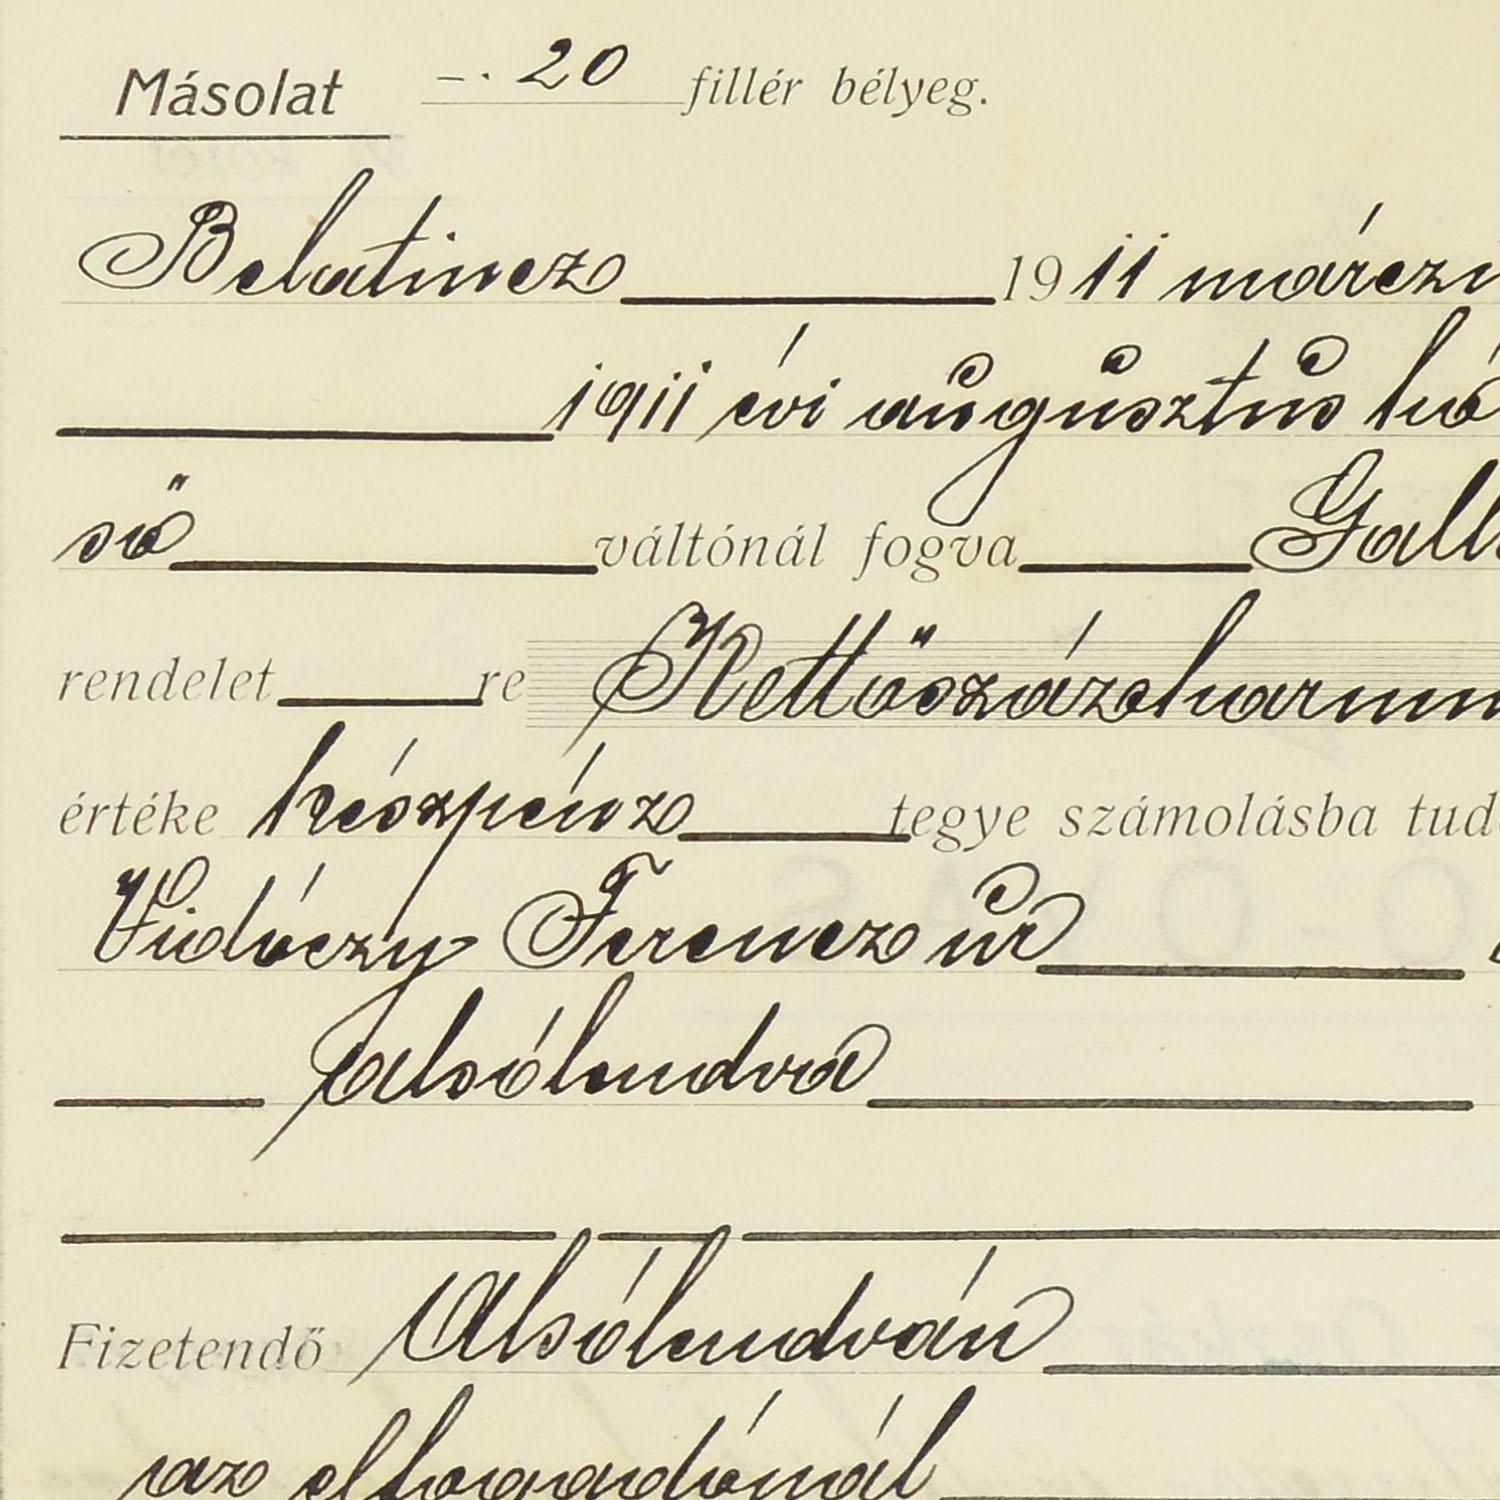 Másolat –. 20 fillér bélyeg.
Belatincz 1911 márczi
1911 évi augusztus hó
ső váltónál fogva Gall
rendelet re Kettőszázharm
értéke készpénz tegye számolásba tud
Vidóczy Ferencz úr
Alsólendva
Fizetendő Alsólendván
az elfogadónál